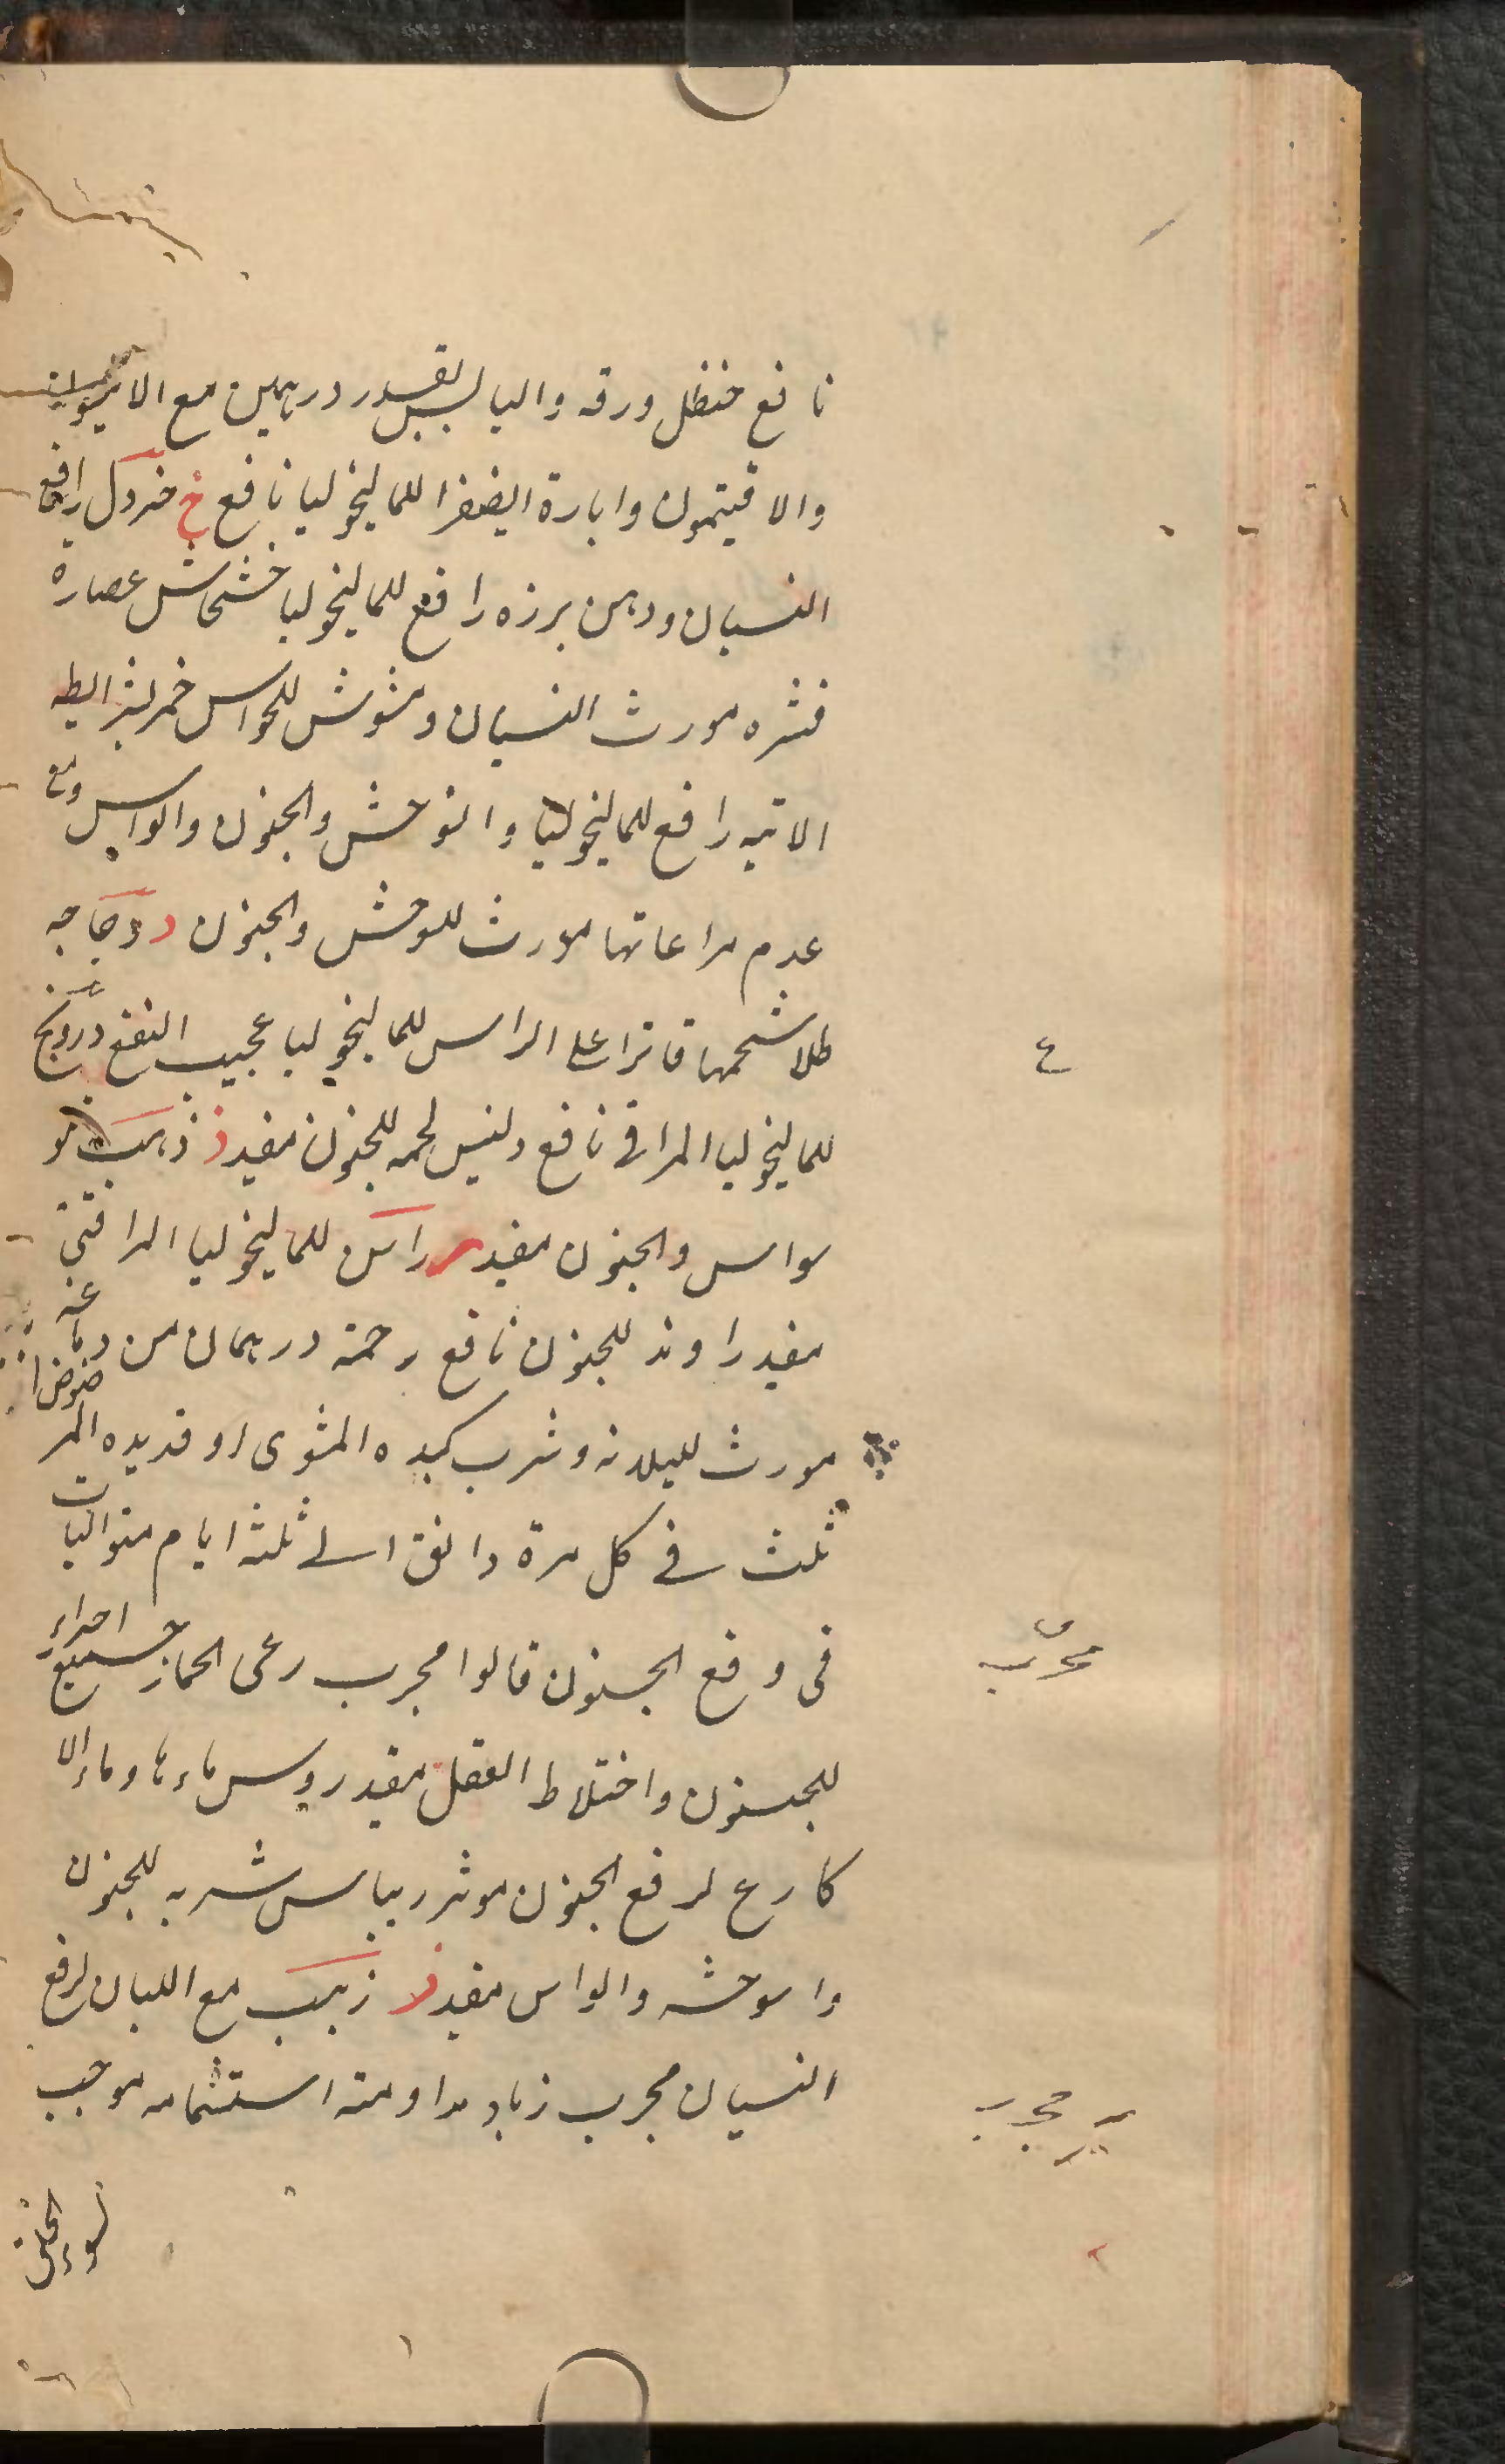 نافع حنظل ورقه واليابس بقدر درهمين مع الانيسون
والافيتمون وابارة الصفرا للماليخوليا نافع خ خردل رافع
النسيان ودهن برزه رافع للماليخوليا خشخاش عصارة
قشره مورث النسيان ومشوش للحواس خمر بشرايطه
الاتيه رافع للماليخوليا والتوحش والجنون والواس ومع
عدم مراعاتها مورث للوحش والجنون د دجاجه
طلا شحمها فاترا على الراس للماليخوليا عجيب النفع درونج
للماليخوليا المراقى نافع لحمه للجنون مفيد ذ ذهب لو
سواس والجنون مفيد ر راسن للماليخوليا المراقى
مفيد راوند للجنون نافع رخمة درهمان من دماغه
مورث للبلادة وشرب كبده المشوى او قديده المر
ثلث فى كل مرة دانق الى ثلثة ايام متواليات
فى دفع الجنون قالوا مجرب رعى الحمار جميع اجزاء
للجنون واختلاط العقل مفيد روس ماءها وماء الا
كارع لرفع الجنون موثر ريباس شربه للجنون
والوحشه والواس مفيد ز زبيب مع اللبان لرفع
النسيان مجرب زباد مداومة استشمامه موجب
لسوء الخلق
ع
مجرب
مجرب